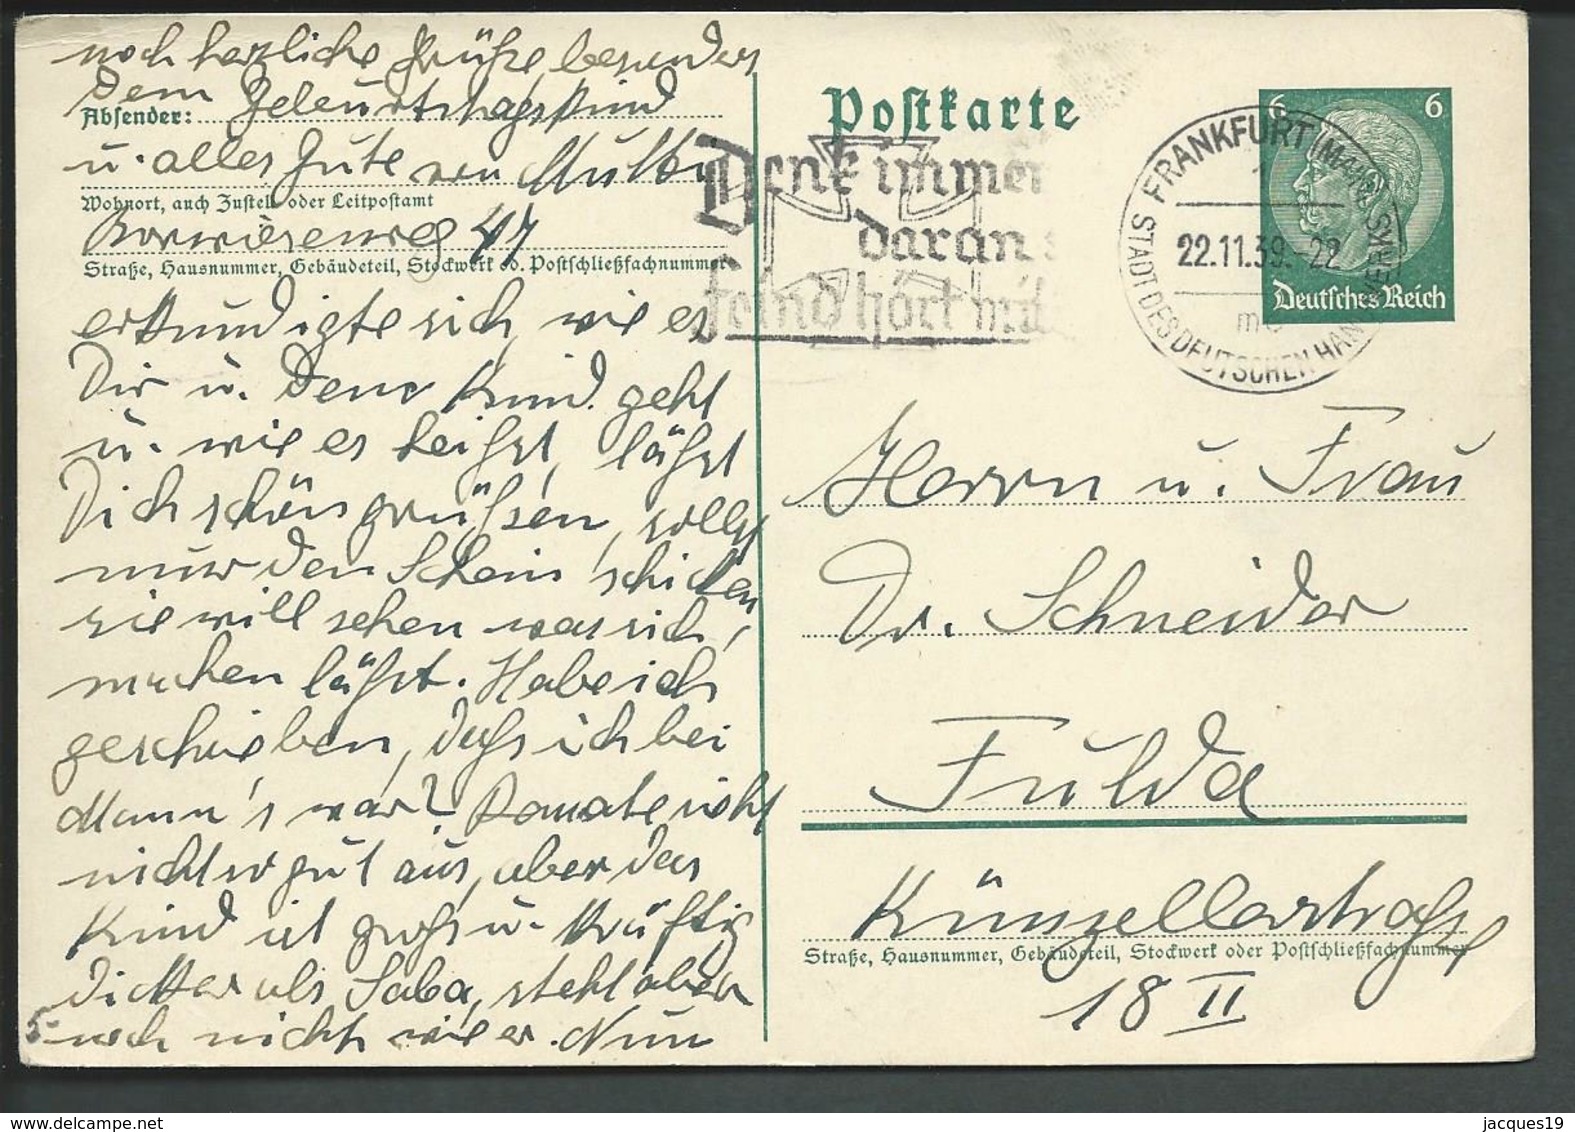 noch herzliche Grüße besonders
dem Geburtstagskind
Absender:
u. alles Gute von Mutti
Wohnort, auch Zustell- oder Leitpostamt
47
Straße, Hausnummer, Gebäudeteil, Stockwerk od. Postschließfachnummer
erkundigte sich, wie es
Dir u. Dem Kind geht
u. wie es heißt, läßt
Dich schön grüßen, sollst
nur den Schein schicken,
sie will sehen was sich
machen läßt. Habe ich
geschrieben, daß ich bei
Mann's war?
nicht
gut aus, aber das
Kind ist groß u. kräftig
dicker als Saba, steht aber
noch nicht wie er. Nun
5-
Postkarte
Denk immer
daran
Feind hört mit
FRANKFURT (MAIN)
1
22.11.39.-22
STADT DES DEUTSCHEN HANDWERKS
6 6
Deutsches Reich
Herrn u. Frau
Dr. Schneider
Fulda
Künzellerstraße
Straße, Hausnummer, Gebäudeteil, Stockwerk oder Postschließfachnummer
18 II
jacques19